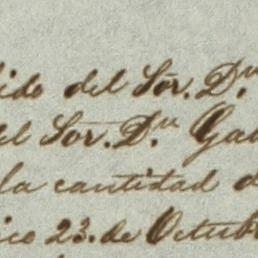 ido del Sor. Dn.
el Sor. Dn. Ga
la cantidad d
ico 23. de Octub